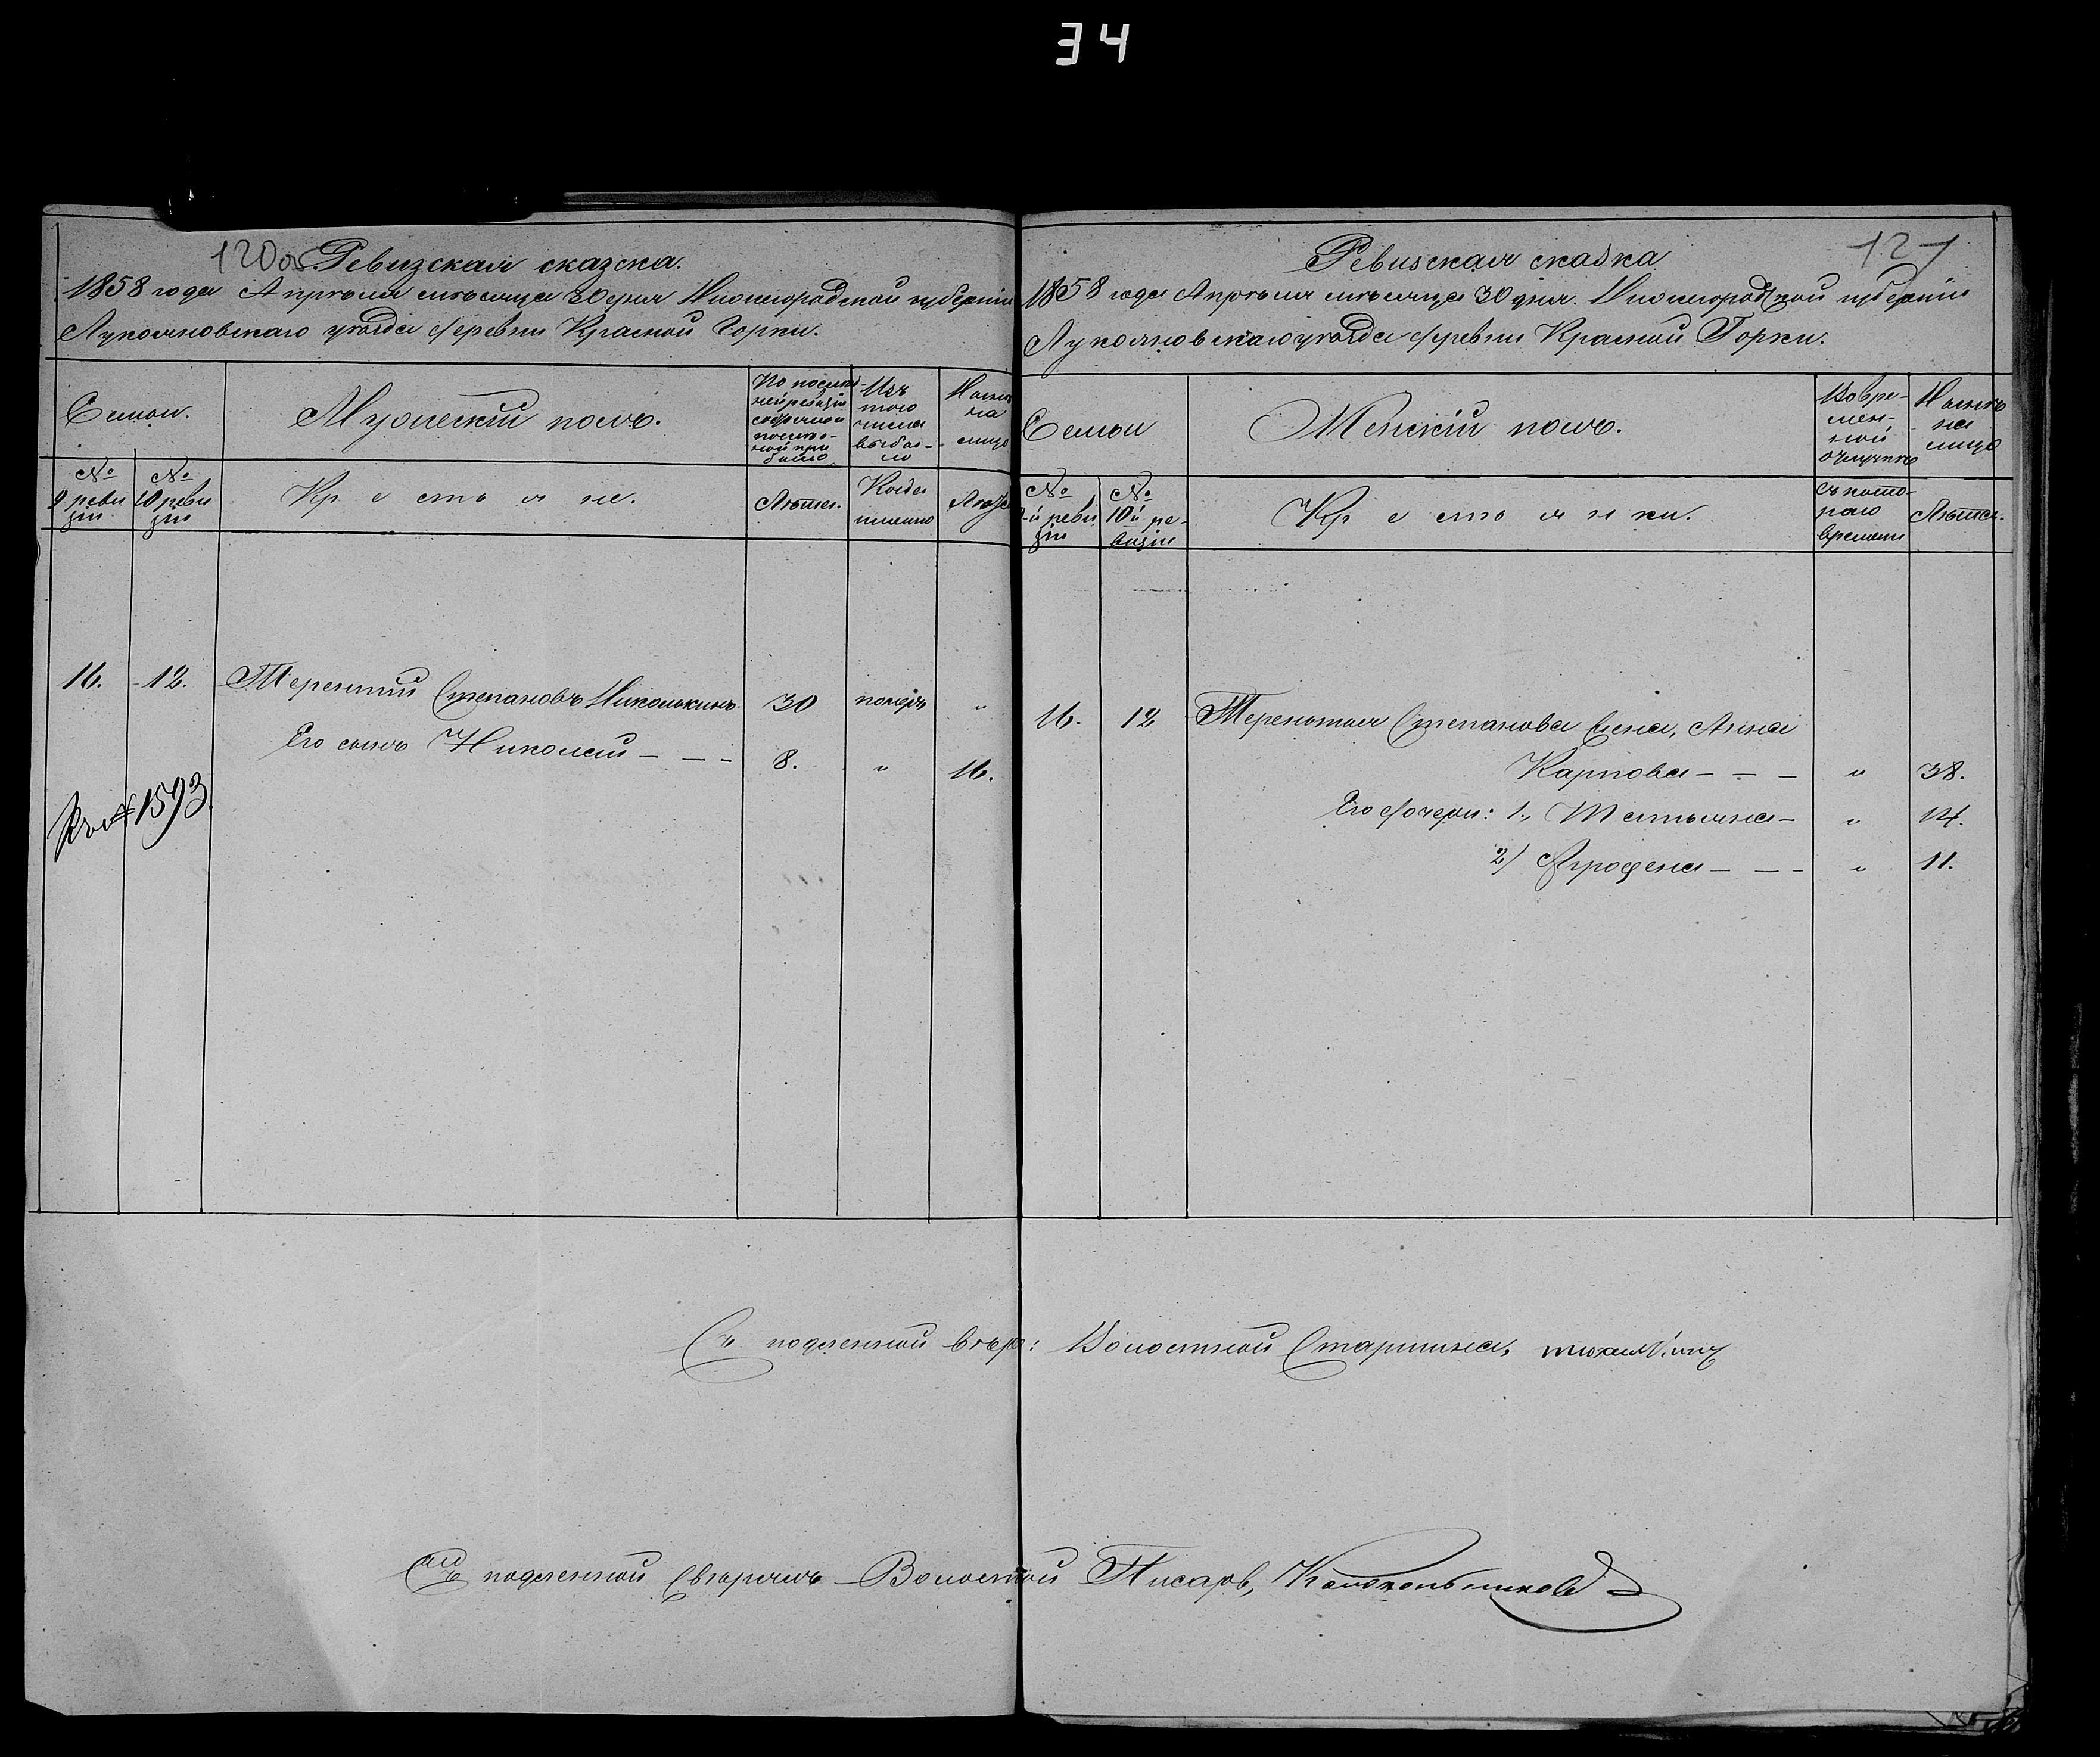 34
120об. Ревизская сказка.
1858 года Апрѣля мѣсяца 30 дня Нижегородской губерніи
Лукояновскаго уѣзда деревни Красной Горки.
Семьи.
Мужескій полъ.
По послѣд-
ней ревизіи
состояло и
послѣ
оной при
было
Изъ
того
числа
выбы-
ло
Нынѣ
на
лицо
№
9 реви
зіи
№
10 реви
зіи
Крестьяне.
Лѣта.
Когда
именно
Лѣта
16. 12. Терентий Степановъ Николькинъ 30 "
Его сынъ Николай – – – 8. " 16.
№ 1593.
121
Ревизская сказка
1858 года Апрѣля мѣсяца 30 дня. Нижегородской губерніи
Лукояновскаго уѣзда деревни Красной Горки.
Семьи
Женскій полъ.
Во вре-
мен-
ной
отлучкѣ
Нынѣ
на
лицо
№
9-й реви
зіи
№
10й ре-
визіи
Крестьянки.
съ кото-
раго
времени
Лѣта.
16. 12 Терентья Степанова жена, Анна
Карпова – – – " 38.
Его дочери: 1., Татьяна – " 14.
2) Агрофена – – – " 11.
Съ подленной вѣрн: Волостной Старшина,
Съ подленной свѣрялъ Волостной Писарь, Колокольниковъ